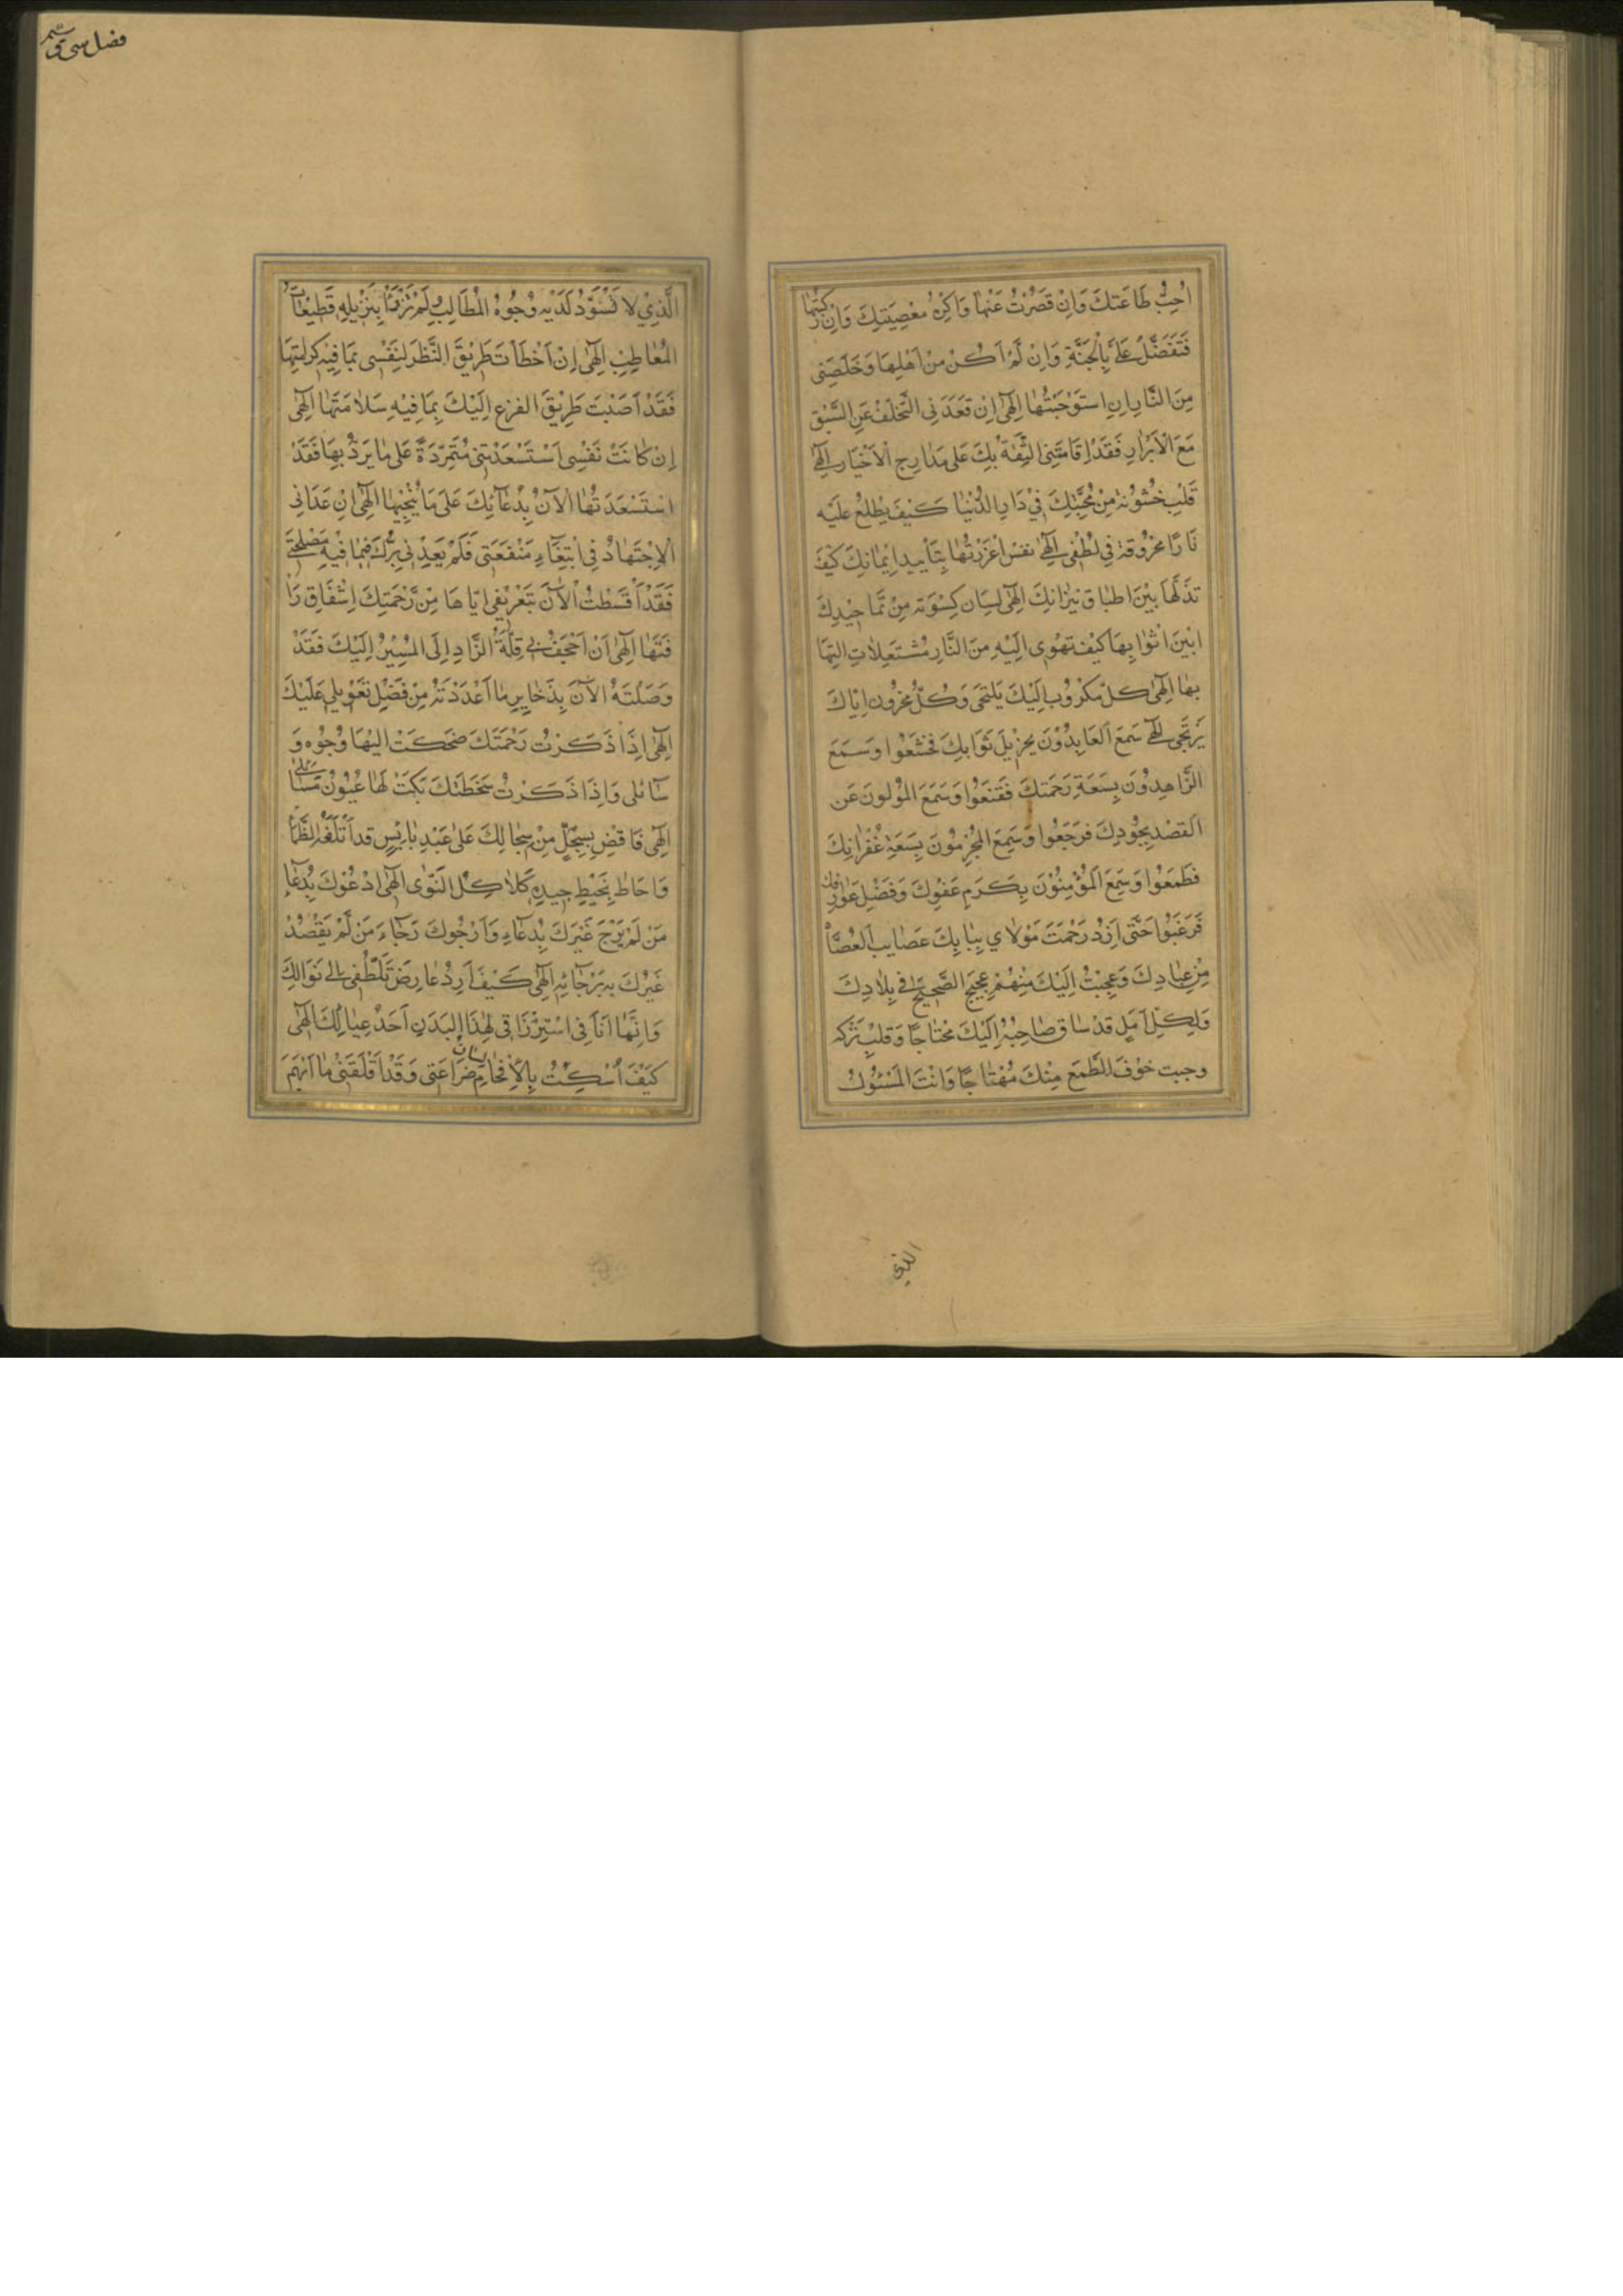 اُحِبُّ طَاعَتَكَ وَاِنْ قَصُرْتُ عَنْهَا وَاَكْرَهُ مَعْصِيَتَكَ وَاِنْ رَكِبْتُهَا
فَتَفَضَّلْ عَلَيَّ بِالْجَنَّةِ وَاِنْ لَمْ اَكُنْ مِنْ اَهْلِهَا وَخَلِّصْنِي
مِنَ النَّارِ اِنِ اسْتَوْجَبْتُهَا اِلٰهِي اِنْ قَعَدَنِي التَّخَلُّفُ عَنِ السَّبْقِ
مَعَ الْاَبْرَارِ فَقَدْ اِقَامَتْنِي الثِّقَةُ بِكَ عَلٰى مَدَارِجِ الْاَخْيَارِ اِلٰهِي
قَلْبٌ خُشُوْنَة مِنْ مُحَبَّتِكَ فِيْ دَارِ الدُّنْيَا كَيْفَ يَطَّلِعُ عَلَيْهِ
نَارًا مَحْرُوقَة فِي لُطْفِي اِلٰهِي نَفْسٌ اَعْزَزْتُهَا بِتَأْيِيدِ اِيْمَانِكَ كَيْفَ
تُذِلُّهَا بَيْنَ اَطْبَاقِ نِيْرَانِكَ اِلٰهِي لِسَان كَسَوْتَه مِنْ تَمَاجِيْدِكَ
اَبْيَنَ اَثْوَابِهَا كَيْفَ تَهْوِي اِلَيْهِ مِنَ النَّارِ مُشْتَعِلَاتِ الْتِهَا
بِهَا اِلٰهِي كُلُّ مَكْرُوْبٍ اِلَيْكَ يَلْتَجِي وَكُلُّ مَحْزُونٍ اِيَّاكَ
يَرْتَجِي اِلٰهِي سَمِعَ الْعَابِدُوْنَ بِجَزِيْلِ ثَوَابِكَ فَخَشَعُوا وَسَمِعَ
الزَّاهِدُوْنَ بِسَعَةِ رَحْمَتِكَ فَقَنَعُوا وَسَمِعَ الْمُوَلُّونَ عَنِ
الْقَصْدِ بِجُوْدِكَ فَرَجَعُوا وَسَمِعَ الْمُجْرِمُوْنَ بِسَعَةِ غُفْرَانِكَ
فَطَمَعُوا وَسَمِعَ الْمُؤْمِنُوْنَ بِكَرَمِ عَفْوِكَ وَفَضْلِ عَوَارِفِكَ
فَرَغَبُوا حَتّٰى اَزْدَحَمَتْ مَوْلَاي بِبَابِكَ عَصَايِبُ الْعُصَاةُ
مِنْ عِبَادِكَ وَعَجَّتْ اِلَيْكَ مِنْهُمْ عَجِيْجُ الضَّجِيْجِ فِي بِلَادِكَ
وَلِكُلٍّ اَمَلٍ قَدْ سَاقَ صَاحِبُهُ اِلَيْكَ مُحْتَاجًا وَقَلْبٌ تَرَكَه
وَجِيْبُ خَوْفِ الطَّمَعِ مِنْكَ مُهْتَاجًا وَاَنْتَ الْمَسْئُوْلُ
الذي
فضل سي
الَّذِيْ لَا تَسْوَدُّ لَدَيْهِ وُجُوْهُ الْمَطَالِبِ وَلَمْ تَرْزَأْ بِتَنْزِيْلِهِ قَطِيْعَاتُ
الْمَعَاطِبِ اِلٰهِي اِنْ اَخْطَأْتُ طَرِيْقَ النَّظَرِ لِنَفْسِي بِمَا فِيْهِ كَرَامَتُهَا
فَقَدْ اَصَبْتُ طَرِيْقَ الْفَزَعِ اِلَيْكَ بِمَا فِيْهِ سَلَامَتُهَا اِلٰهِي
اِنْ كَانَتْ نَفْسِي اسْتَسْعَدَتْنِي مُتَمَرِّدَةً عَلٰى مَا يَرُدُّ بِهَا فَقَدْ
اسْتَسْعَدْتُهَا الْآنَ بِدُعَائِكَ عَلٰى مَا يُنْجِيْهَا اِلٰهِي اِنْ عَدَانِي
الْاِجْتِهَادُ فِي ابْتِغَاءِ مَنْفَعَتِي فَلَمْ يَعْدُنِي بِرُّكَ فِيْمَا فِيْهِ مَصْلَحَتِي
فَقَدْ اَقْسَطْتُ الْآنَ بِتَعْرِيْفِي اِيَّاهَا مِنْ رَحْمَتِكَ اِشْفَاقَ رَأْ
فَتِهَا اِلٰهِي اَنْ اَجْحَفَ بِي قِلَّةُ الزَّادِ اِلَى الْمَسِيْرِ اِلَيْكَ فَقَدْ
وَصَلْتُهُ الْآنَ بِذَخَايِرِ مَا اَعْدَدْتُهُ مِنْ فَضْلِ تَعْوِيْلِي عَلَيْكَ
اِلٰهِي اِذَا ذَكَرْتُ رَحْمَتَكَ ضَحِكَتْ اِلَيْهَا وُجُوْه وَ
سَائِلِي وَاِذَا ذَكَرْتُ سَخَطَتَكَ بَكَتْ لَهَا عُيُوْنُ مَسَائِلِي
اِلٰهِي فَاقْضِ بِسِجِلٍّ مِنْ سِجَالِكَ عَلٰى عَبْدٍ بَايِسٍ قَدْ اَتْلَفَهُ الظَّمَأُ
وَاَحَاطَ بِخَيْطِ جِيْدِهِ كَلَالُ الْوَنٰى اِلٰهِي اَدْعُوْكَ بِدُعَاءِ
مَنْ لَمْ يَرْجَ غَيْرَكَ بِدُعَاءٍ وَاَرْجُوكَ رَجَاءَ مَنْ لَمْ يَقْصُدْ
غَيْرَكَ بِرَجَائِهِ اِلٰهِي كَيْفَ اَرُدُّ عَارِضَ تَلَطُّفِي اِلٰى نَوَالِكَ
وَاِنَّهَا اَنَا فِي اسْتِرْزَاقِي لِهٰذَا الْبَدَنِ اَحَدُ عِيَالِكَ اِلٰهِي
كَيْفَ اُسْكِتُ بِالْاِفْحَامِ لسان ضَرَاعَتِي وَقَدْ اَقْلَقَنِي مَا اَبْهَمَ